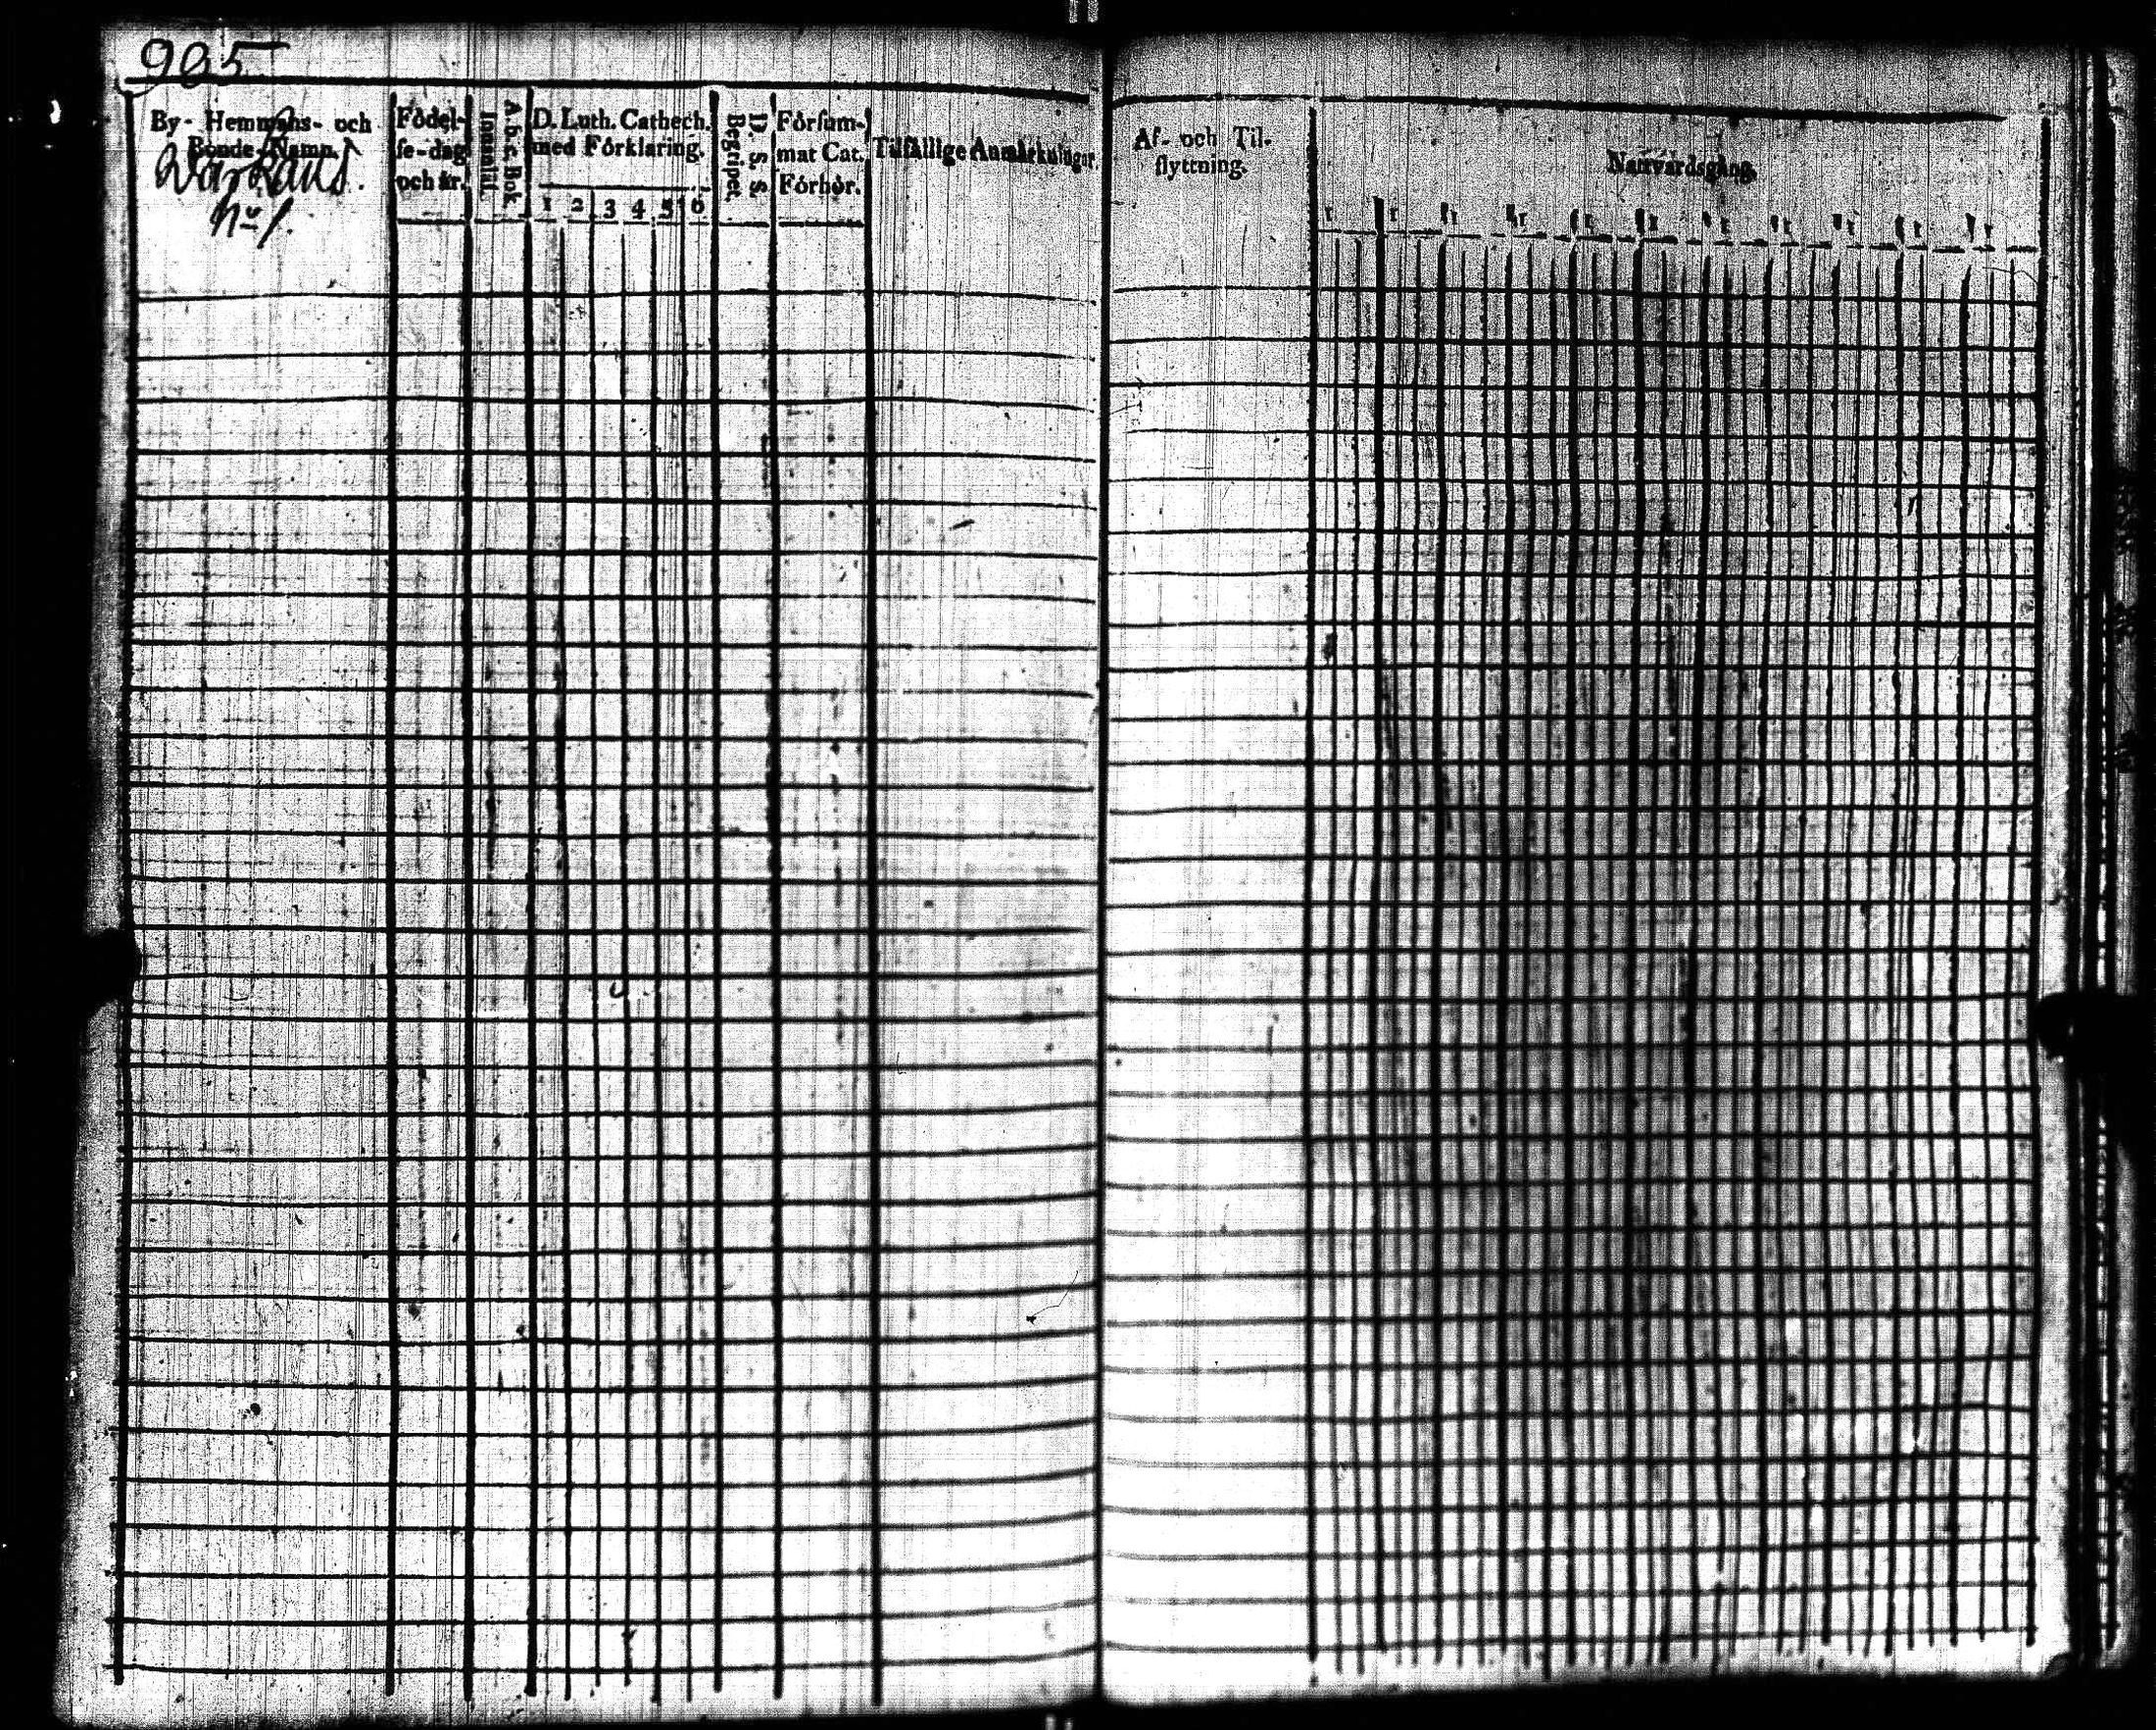 905
By- Hemmans- och
Bonde-Namn.
Warkaus.
No 1.
Fődel-
se-dag
och år.
A. b. c. Bok
Innantil.
D. Luth. Cathech.
med Főrklaring.
1 2 3 4 5 6
D. S. S.
Begripet.
Főrsum-
mat Cat.
Főrhőr.
Tilfällige Anmärkningar.
Af- och Til-
flyttning.
Nattvardsgång.